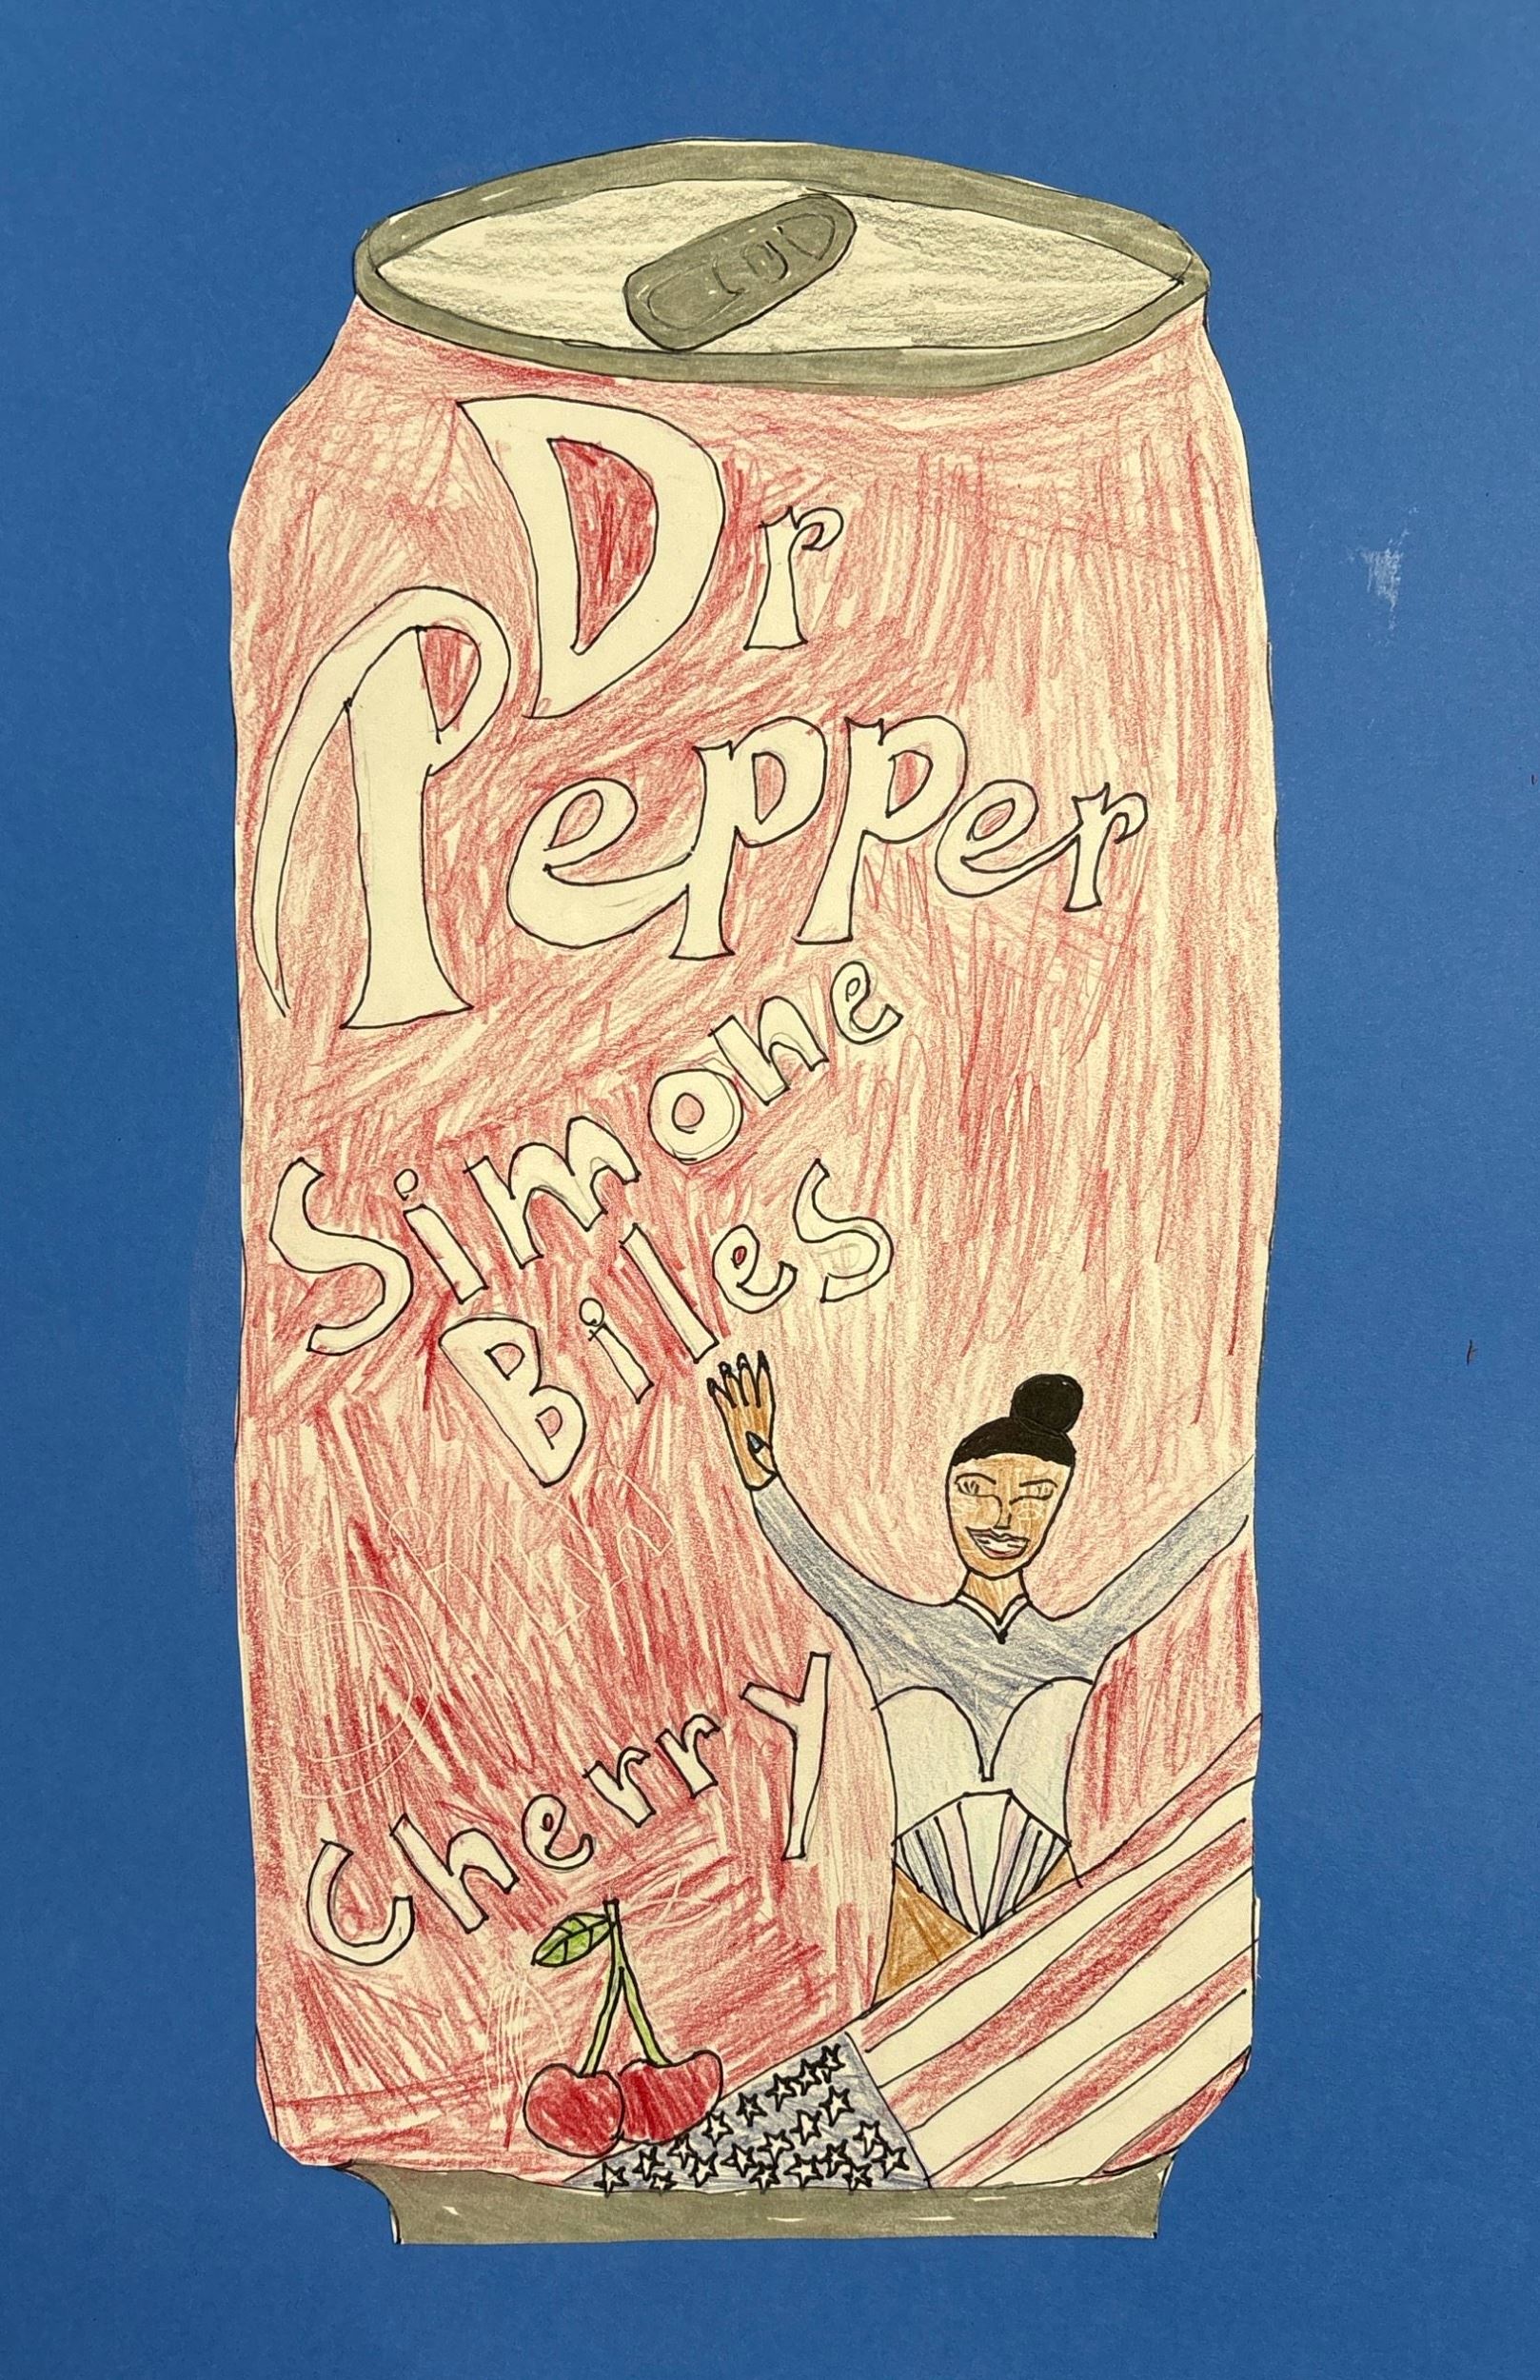 Dr
Pepper
Simone
Biles
Cherry